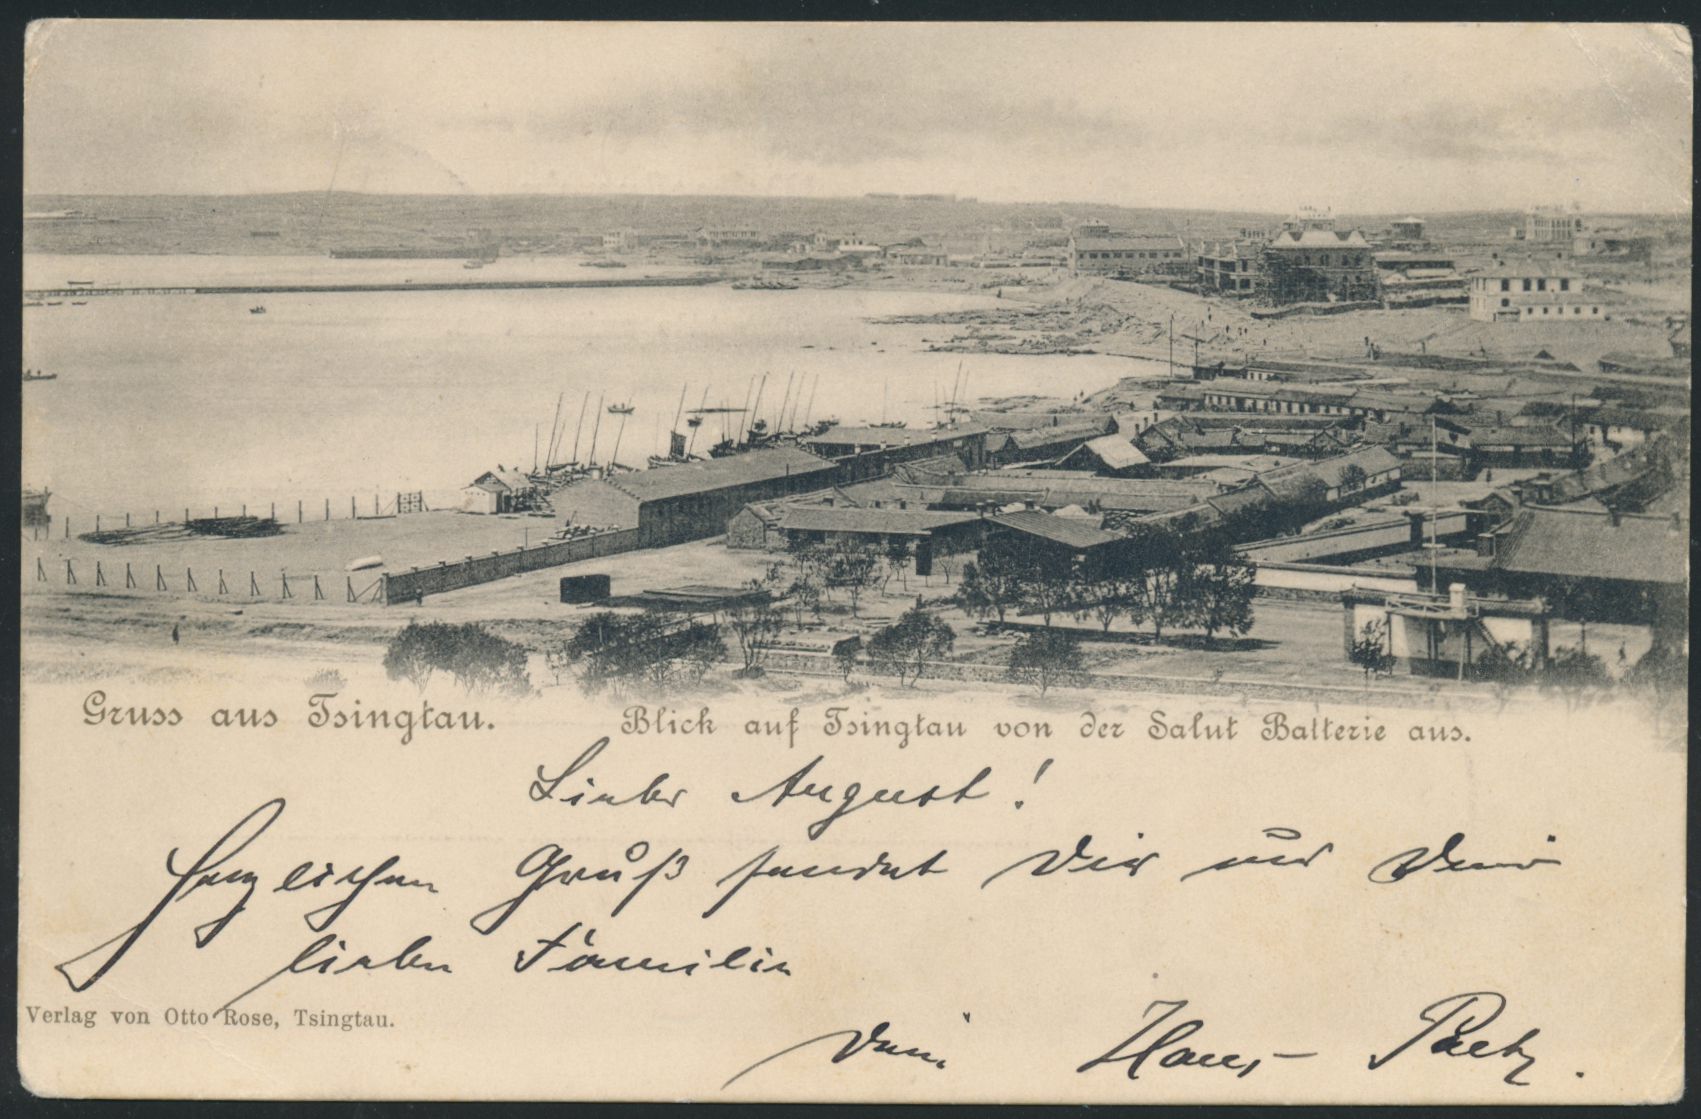 Gruss aus Tsingtau.
Blick auf Tsingtau von der Salut Batterie aus.
Lieber August!
Herzlichen Gruß sendet Dir und Deiner
lieben Familie
Verlag von Otto Rose, Tsingtau.
Dein Hans Paetz.